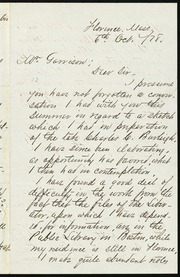 Florence, Mass.,
6th Oct. /78.
Mr. Garrison;
Dear Sir,
I presume
you have not forgotten a conver-
sation I had with you this
summer in regard to a sketch
which I had in preparation of
the late Charles C. Burleigh.
I have since been elaborating,
as opportunity has favored, what
I then had in contemplation.
I have found a good deal of
difficulty in the work from the
fact that the files of the Liber-
ator, upon which I have depend-
ed for information, are in the
Public Library in Boston, while
my residence is still in Florence.
I made quite abundant notes